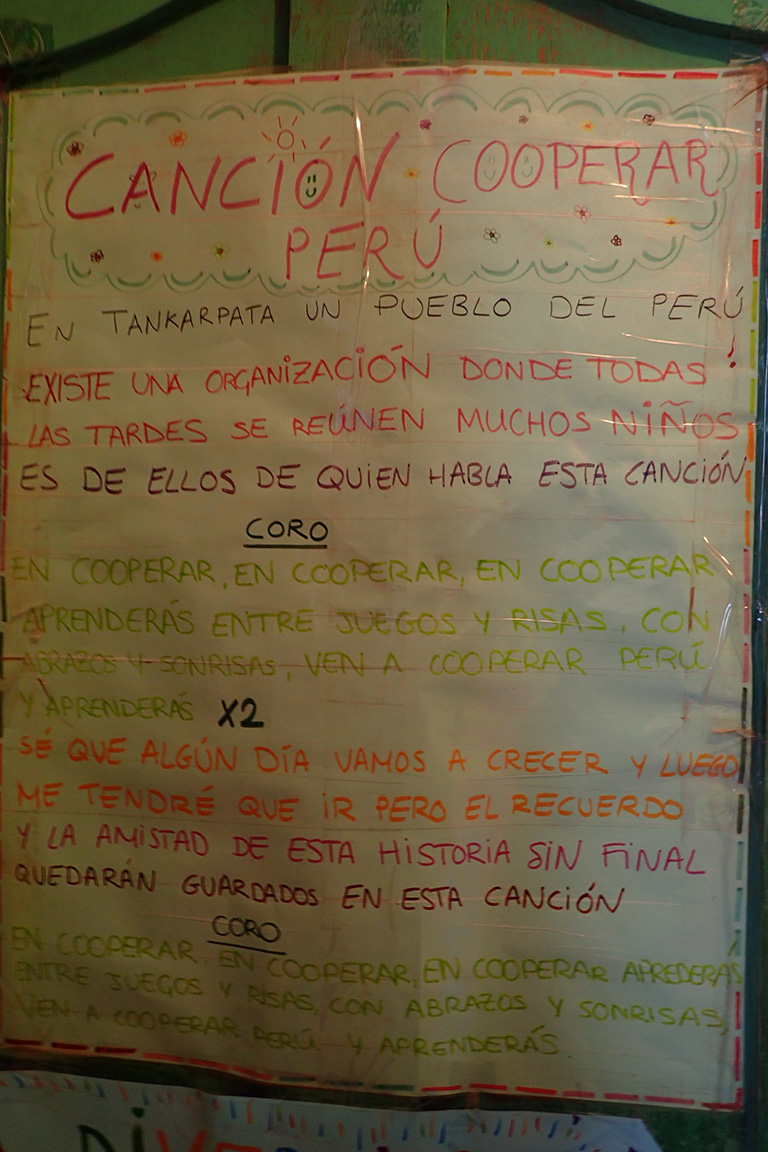 CANCIÓN COOPERAR
PERÚ
EN TANKARPATA UN PUEBLO DEL PERÚ
EXISTE UNA ORGANIZACIÓN DONDE TODAS
LAS TARDES SE REÚNEN MUCHOS NIÑOS
ES DE ELLOS DE QUIEN HABLA ESTA CANCIÓN
CORO
EN COOPERAR, EN COOPERAR, EN COOPERAR
APRENDERÁS ENTRE JUEGOS Y RISAS, CON
ABRAZOS Y SONRISAS, VEN A COOPERAR PERÚ
Y APRENDERÁS X2
SÉ QUE ALGÚN DÍA VAMOS A CRECER Y LUEGO
ME TENDRÉ QUE IR PERO EL RECUERDO
Y LA AMISTAD DE ESTA HISTORIA SIN FINAL
QUEDARÁN GUARDADOS EN ESTA CANCIÓN
CORO
EN COOPERAR, EN COOPERAR, EN COOPERAR APREDERÁS
ENTRE JUEGOS Y RISAS, CON ABRAZOS Y SONRISAS,
VEN A COOPERAR PERÚ Y APRENDERÁS.